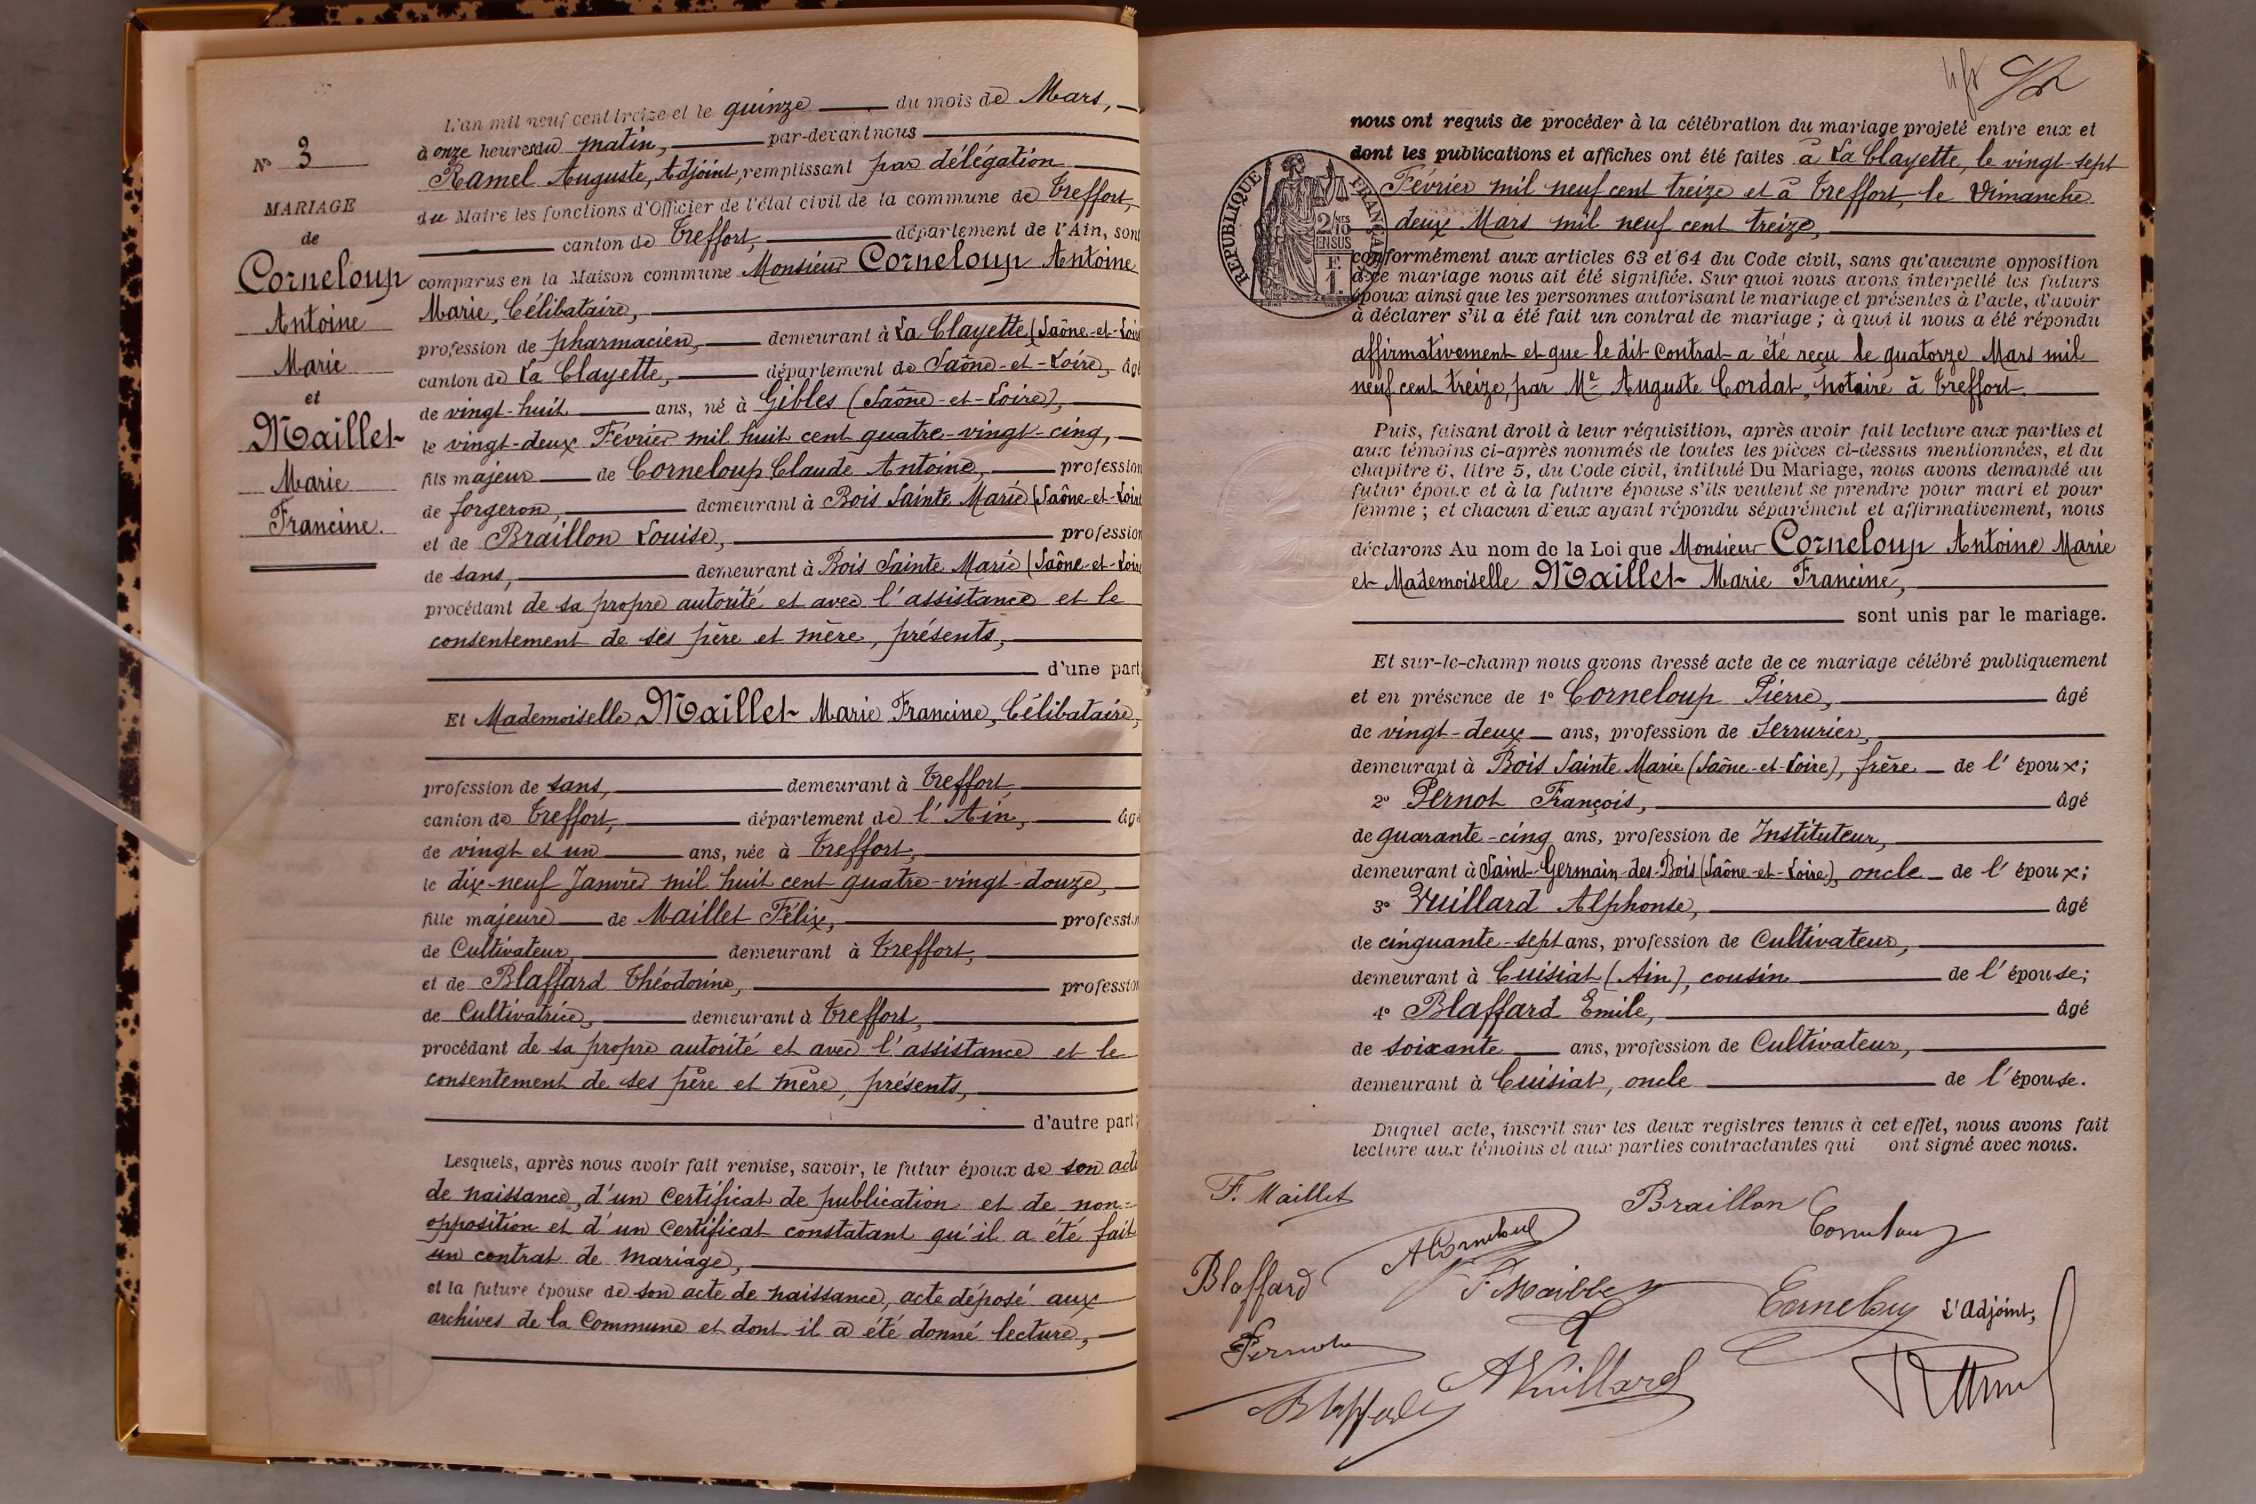 N° 3
MARIAGE
de
Corneloup
Antoine
Marie
et
Maillet
Marie
Francine.
L'an mil neuf cent treize et le quinze du mois de Mars,
à onze heures du matin, par-devant nous
Ramel Auguste, Adjoint, remplissant par délégation
du Maire les fonctions d'Officier de l'état civil de la commune de Treffort,
canton de Treffort, département de l'Ain, sont
comparus en la Maison commune Monsieur Corneloup Antoine
Marie, Célibataire,
profession de pharmacien, demeurant à La Clayette (Saône-et-Loire
canton de La Clayette, département de Saône-et-Loire, âgé
de vingt-huit ans, né à Gibles (Saône-et-Loire),
le vingt-deux Février mil huit cent quatre-vingt-cinq,
fils majeur de Corneloup Claude Antoine, profession
de forgeron, demeurant à Bois Sainte Marie (Saône-et-Loire
et de Braillon Louise, profession
de sans, demeurant à Bois Sainte Marie (Saône-et-Loire
procédant de sa propre autorité et avec l'assistance et le
consentement de ses père et mère, présents,
d'une part
Et Mademoiselle Maillet Marie Francine, Célibataire,
profession de sans, demeurant à Treffort,
canton de Treffort, département de l'Ain, âgé
de vingt et un ans, née à Treffort,
le dix-neuf Janvier mil huit cent quatre-vingt-douze,
fille majeure de Maillet Félix, profession
de Cultivateur, demeurant à Treffort,
et de Blaffard Théodorine, profession
de Cultivatrice, demeurant à Treffort,
procédant de sa propre autorité et avec l'assistance et le
consentement de ses père et mère, présents,
d'autre part;
Lesquels, après nous avoir fait remise, savoir, le futur époux de son acte
de naissance, d'un certificat de publication et de non-
opposition et d'un certificat constatant qu'il a été fait
un contrat de mariage,
et la future épouse de son acte de naissance, acte déposé aux
archives de la Commune et dont il a été donné lecture,
RÉPUBLIQUE FRANÇAISE
2/10
EN SUS
F.
1.
nous ont requis de procéder à la célébration du mariage projeté entre eux et
dont les publications et affiches ont été faites à La Clayette, le vingt-sept
Février mil neuf cent treize et à Treffort, le Dimanche
deux Mars mil neuf cent treize,
conformément aux articles 63 et 64 du Code civil, sans qu'aucune opposition
à ce mariage nous ait été signifiée. Sur quoi nous avons interpellé les futurs
époux ainsi que les personnes autorisant le mariage et présentes à l'acte, d'avoir
à déclarer s'il a été fait un contrat de mariage ; à quoi il nous a été répondu
affirmativement et que le dit contrat a été reçu le quatorze Mars mil
neuf cent treize, par Me Auguste Cordat, notaire à Treffort.
Puis, faisant droit à leur réquisition, après avoir fait lecture aux parties et
aux témoins ci-après nommés de toutes les pièces ci-dessus mentionnées, et du
chapitre 6, titre 5, du Code civil, intitulé Du Mariage, nous avons demandé au
futur époux et à la future épouse s'ils veulent se prendre pour mari et pour
femme ; et chacun d'eux ayant répondu séparément et affirmativement, nous
déclarons Au nom de la Loi que Monsieur Corneloup Antoine Marie
et Mademoiselle Maillet Marie Francine,
sont unis par le mariage.
Et sur-le-champ nous avons dressé acte de ce mariage célébré publiquement
et en présence de 1° Corneloup Pierre, âgé
de vingt-deux ans, profession de Serrurier,
demeurant à Bois Sainte Marie (Saône-et-Loire), frère de l'époux;
2° Pernot François, âgé
de quarante-cinq ans, profession de Instituteur,
demeurant à Saint-Germain-des-Bois (Saône-et-Loire), oncle de l'époux;
3° Vuillard Alphonse, âgé
de cinquante-sept ans, profession de Cultivateur,
demeurant à Cuisiat (Ain), cousin de l'épouse;
4° Blaffard Emile, âgé
de soixante ans, profession de Cultivateur,
demeurant à Cuisiat, oncle de l'épouse.
Duquel acte, inscrit sur les deux registres tenus à cet effet, nous avons fait
lecture aux témoins et aux parties contractantes qui ont signé avec nous.
F. Maillet
Braillon
Corneloup
A Corneloup
Blaffard
F. Maillet
Corneloup
L'adjoint,
Pernot
A Vuillard
Blaffard
Ramel